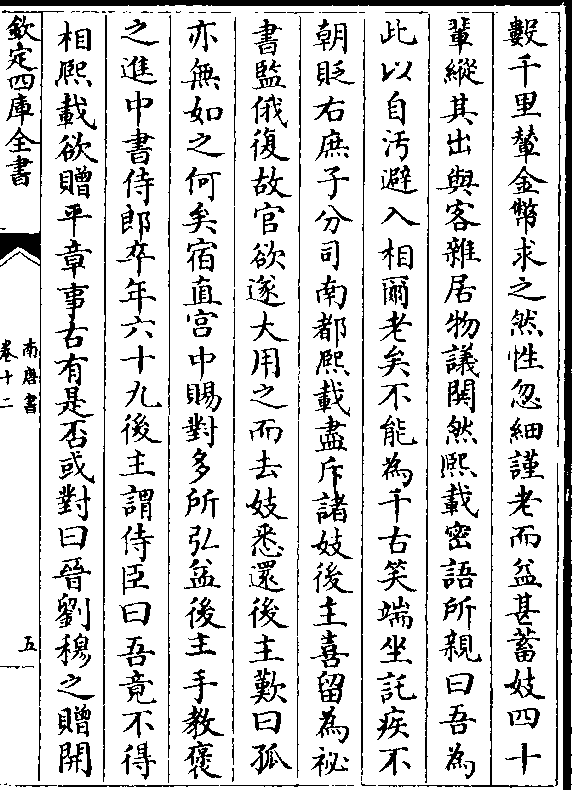 數千里輦金幣求之然性忽細謹老而益甚蓄妓四十
輩縱其出與客雜居物議閧然熙載密語所親曰吾為
此以自汚避入相爾老矣不能為千古笑端坐託疾不
朝貶右庶子分司南都熙載盡斥諸妓後主喜留為祕
書監俄復故官欲遂大用之而去妓悉還後主歎曰孤
亦無如之何矣宿直宮中賜對多所弘益後主手教褒
之進中書侍郎卒年六十九後主謂侍臣曰吾竟不得
相熙載欲贈平章事古有是否或對曰晉劉穆之贈開
欽定四庫全書
南唐書
卷十二
五